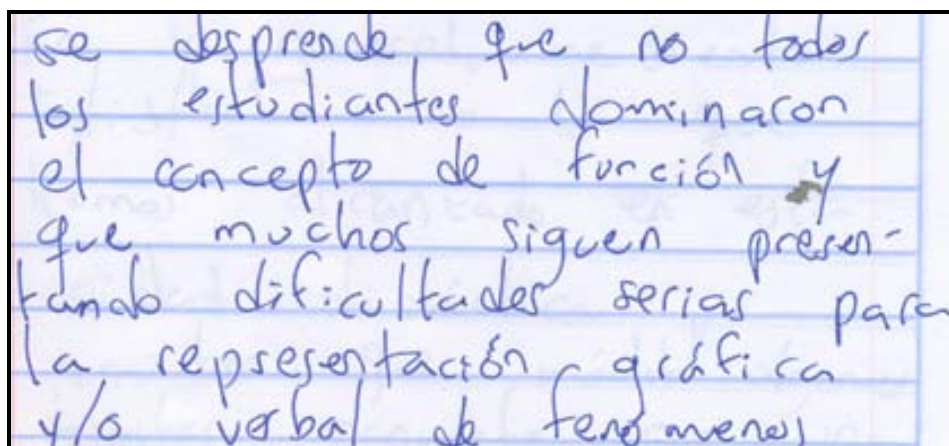 se desprende que no todos
los estudiantes dominaron
el concepto de función y
que muchos siguen presen-
tando dificultades serias para
la representación gráfica
y/o verbal de fenómenos